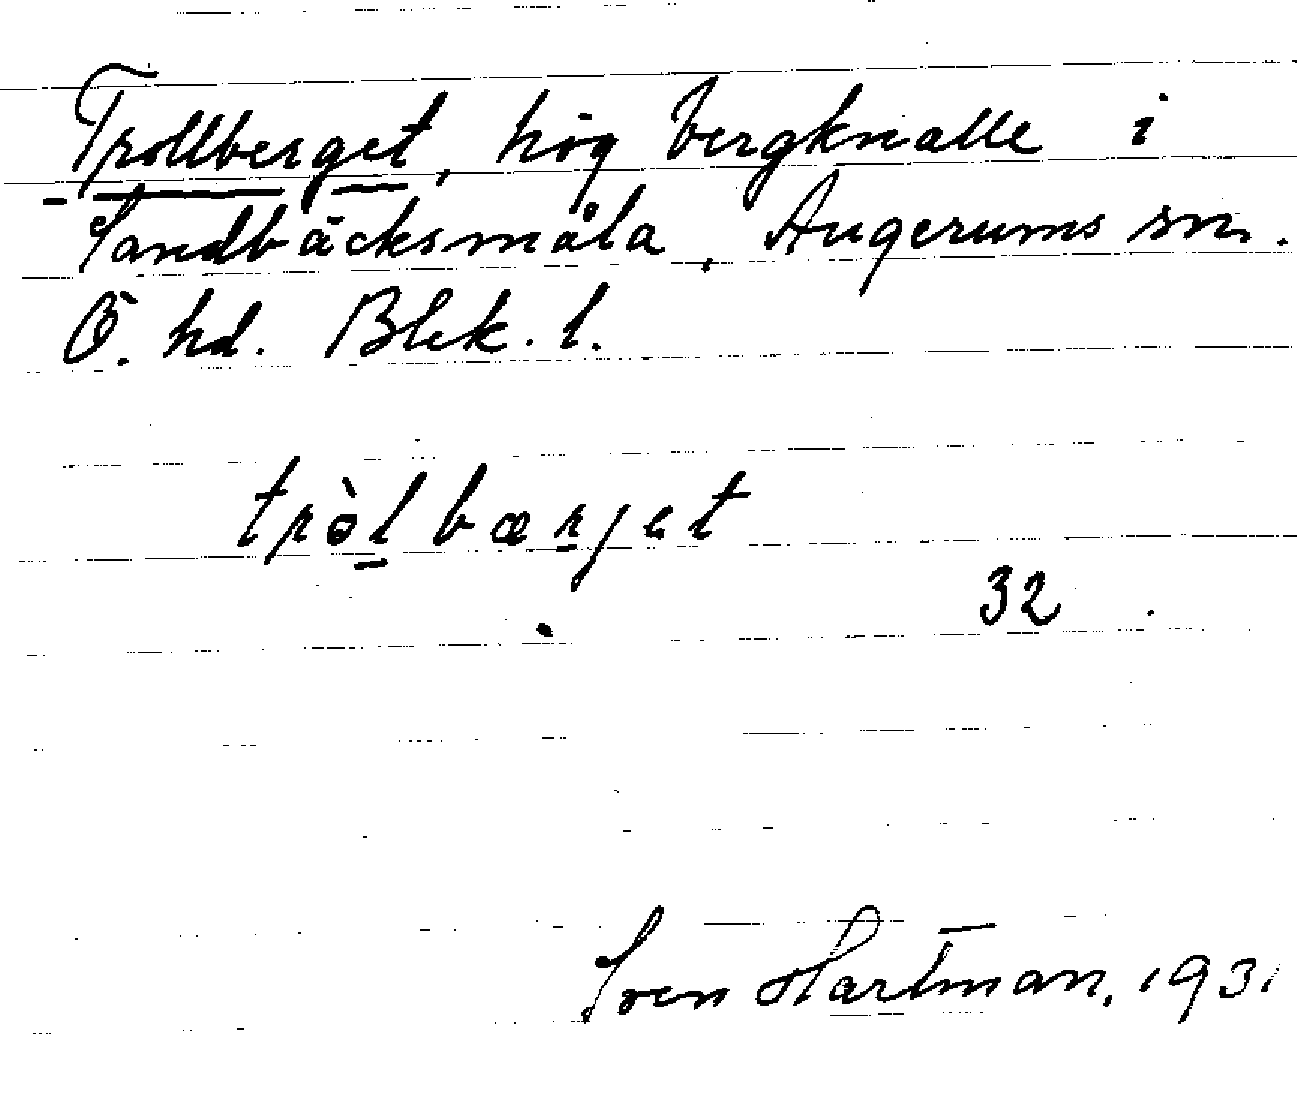 Trollberget, hög bergknalle i
Sandbäcksmåla, Augerums sn.
Ö. hd. Blek. l.
tròl bærjet
32
Sven Hartman, 1931